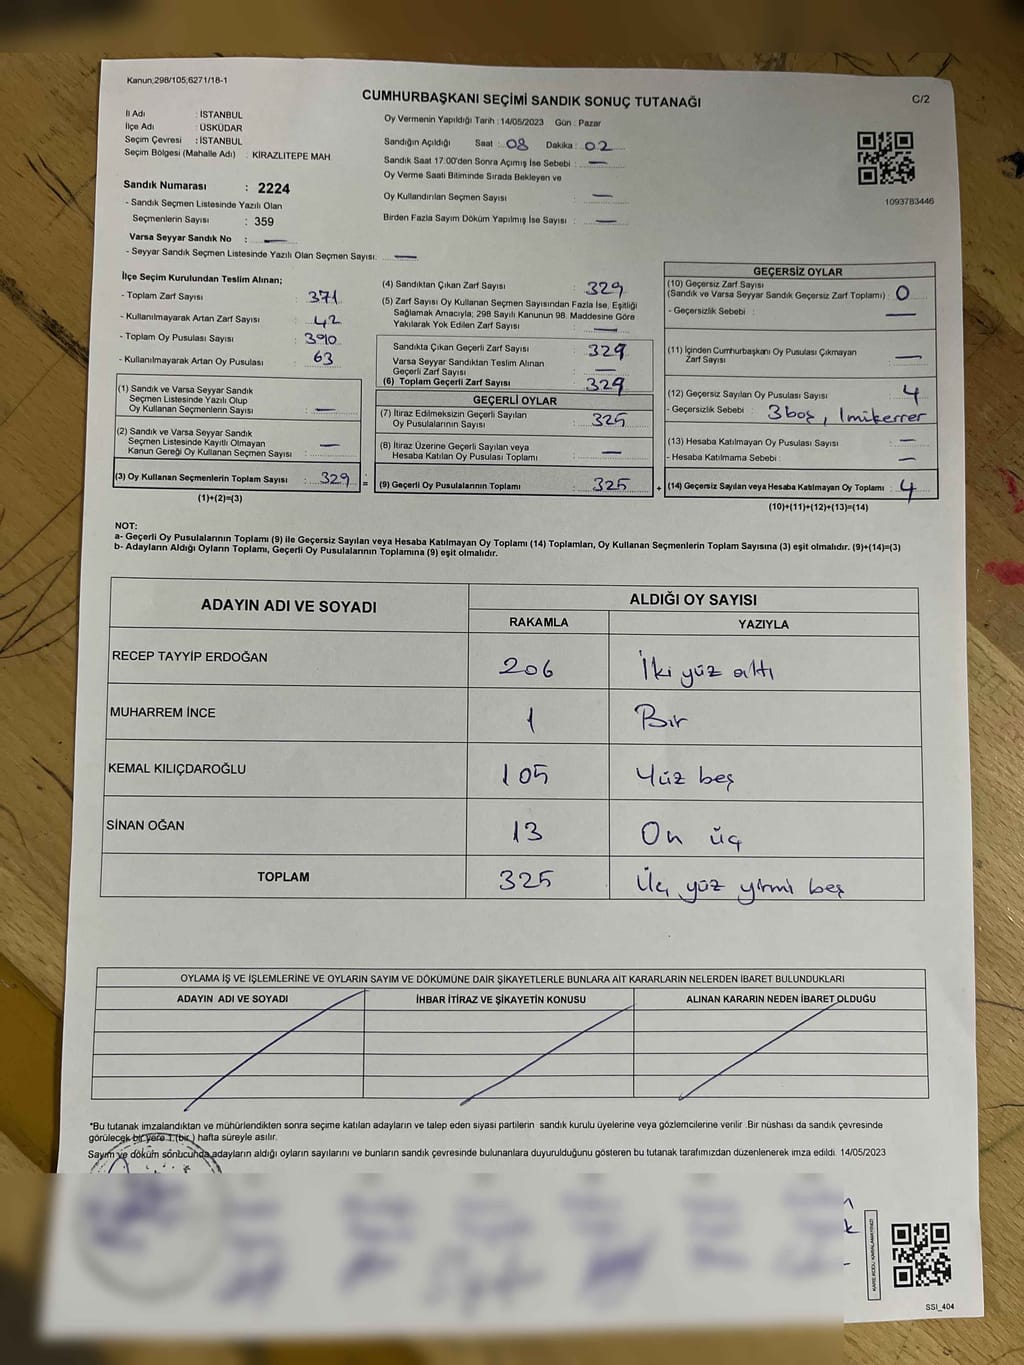 Kanun,298/105,6271/18-1
C/2
CUMHURBAŞKANI SEÇİMİ SANDIK SONUÇ TUTANAĞI
İl Adı : İSTANBUL
İlçe Adı : ÜSKÜDAR
Seçim Çevresi : İSTANBUL
Seçim Bölgesi (Mahalle Adı) : KİRAZLITEPE MAH
Sandık Numarası : 2224
- Sandık Seçmen Listesinde Yazılı Olan
Seçmenlerin Sayısı : 359
Varsa Seyyar Sandık No : —
- Seyyar Sandık Seçmen Listesinde Yazılı Olan Seçmen Sayısı. —
Oy Vermenin Yapıldığı Tarih : 14/05/2023 Gün : Pazar
Sandığın Açıldığı Saat : 08 Dakika : 02
Sandık Saat 17:00'den Sonra Açımış İse Sebebi : —
Oy Verme Saati Bitiminde Sırada Bekleyen ve
Oy Kullandırılan Seçmen Sayısı : —
Birden Fazla Sayım Döküm Yapılmış İse Sayısı : —
1093783446
İlçe Seçim Kurulundan Teslim Alınan;
- Toplam Zarf Sayısı : 371
- Kullanılmayarak Artan Zarf Sayısı : 42
- Toplam Oy Pusulası Sayısı : 390
- Kullanılmayarak Artan Oy Pusulası : 63
(1) Sandık ve Varsa Seyyar Sandık
Seçmen Listesinde Yazılı Olup
Oy Kullanan Seçmenlerin Sayısı : —
(2) Sandık ve Varsa Seyyar Sandık
Seçmen Listesinde Kayıtlı Olmayan
Kanun Gereği Oy Kullanan Seçmen Sayısı : —
(3) Oy Kullanan Seçmenlerin Toplam Sayısı : 329 =
(1)+(2)=(3)
(4) Sandıktan Çıkan Zarf Sayısı : 329
(5) Zarf Sayısı Oy Kullanan Seçmen Sayısından Fazla İse, Eşitliği
Sağlamak Amacıyla; 298 Sayılı Kanunun 98. Maddesine Göre
Yakılarak Yok Edilen Zarf Sayısı : —
Sandıkta Çıkan Geçerli Zarf Sayısı : 329
Varsa Seyyar Sandıktan Teslim Alınan
Geçerli Zarf Sayısı : —
(6) Toplam Geçerli Zarf Sayısı : 329
GEÇERLİ OYLAR
(7) İtiraz Edilmeksizin Geçerli Sayılan
Oy Pusulalarının Sayısı : 325
(8) İtiraz Üzerine Geçerli Sayılan veya
Hesaba Katılan Oy Pusulası Toplamı : —
(9) Geçerli Oy Pusulalarının Toplamı : 325 +
GEÇERSİZ OYLAR
(10) Geçersiz Zarf Sayısı
(Sandık ve Varsa Seyyar Sandık Geçersiz Zarf Toplamı) : 0
- Geçersizlik Sebebi : —
(11) İçinden Cumhurbaşkanı Oy Pusulası Çıkmayan
Zarf Sayısı : —
(12) Geçersiz Sayılan Oy Pusulası Sayısı : 4
- Geçersizlik Sebebi : 3 boş, 1 mükerrer
(13) Hesaba Katılmayan Oy Pusulası Sayısı : —
- Hesaba Katılmama Sebebi : —
(14) Geçersiz Sayılan veya Hesaba Katılmayan Oy Toplamı : 4
(10)+(11)+(12)+(13)=(14)
NOT:
a- Geçerli Oy Pusulalarının Toplamı (9) ile Geçersiz Sayılan veya Hesaba Katılmayan Oy Toplamı (14) Toplamları, Oy Kullanan Seçmenlerin Toplam Sayısına (3) eşit olmalıdır. (9)+(14)=(3)
b- Adayların Aldığı Oyların Toplamı, Geçerli Oy Pusulalarının Toplamına (9) eşit olmalıdır.
ADAYIN ADI VE SOYADI ALDIĞI OY SAYISI
RAKAMLA YAZIYLA
RECEP TAYYİP ERDOĞAN 206 İki yüz altı
MUHARREM İNCE 1 Bir
KEMAL KILIÇDAROĞLU 105 Yüz beş
SİNAN OĞAN 13 On üç
TOPLAM 325 Üç yüz yirmi beş
OYLAMA İŞ VE İŞLEMLERİNE VE OYLARIN SAYIM VE DÖKÜMÜNE DAİR ŞİKAYETLERLE BUNLARA AİT KARARLARIN NELERDEN İBARET BULUNDUKLARI
ADAYIN ADI VE SOYADI İHBAR İTİRAZ VE ŞİKAYETİN KONUSU ALINAN KARARIN NEDEN İBARET OLDUĞU
*Bu tutanak imzalandıktan ve mühürlendikten sonra seçime katılan adayların ve talep eden siyasi partilerin sandık kurulu üyelerine veya gözlemcilerine verilir .Bir nüshası da sandık çevresinde
görülecek bir yere 1 (bir ) hafta süreyle asılır.
Sayım ve döküm sonucunda adayların aldığı oyların sayılarını ve bunların sandık çevresinde bulunanlara duyurulduğunu gösteren bu tutanak tarafımızdan düzenlenerek imza edildi. 14/05/2023
KARE KODU KARALAMAYINIZ!
SSI_404